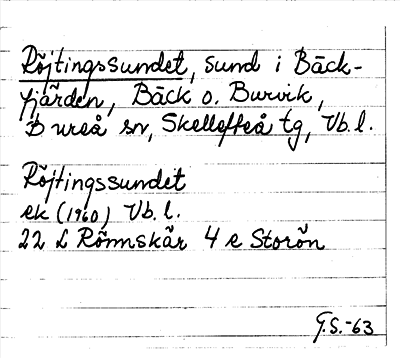 Röjtingssundet, sund i Bäck-
fjärden, Bäck o. Burvik,
Bureå sn, Skellefteå tg, Vb. l.
Röjtingssundet
ek (1960) Vb. l.
22 L Rönnskär 4 e Storön
G.S.-63